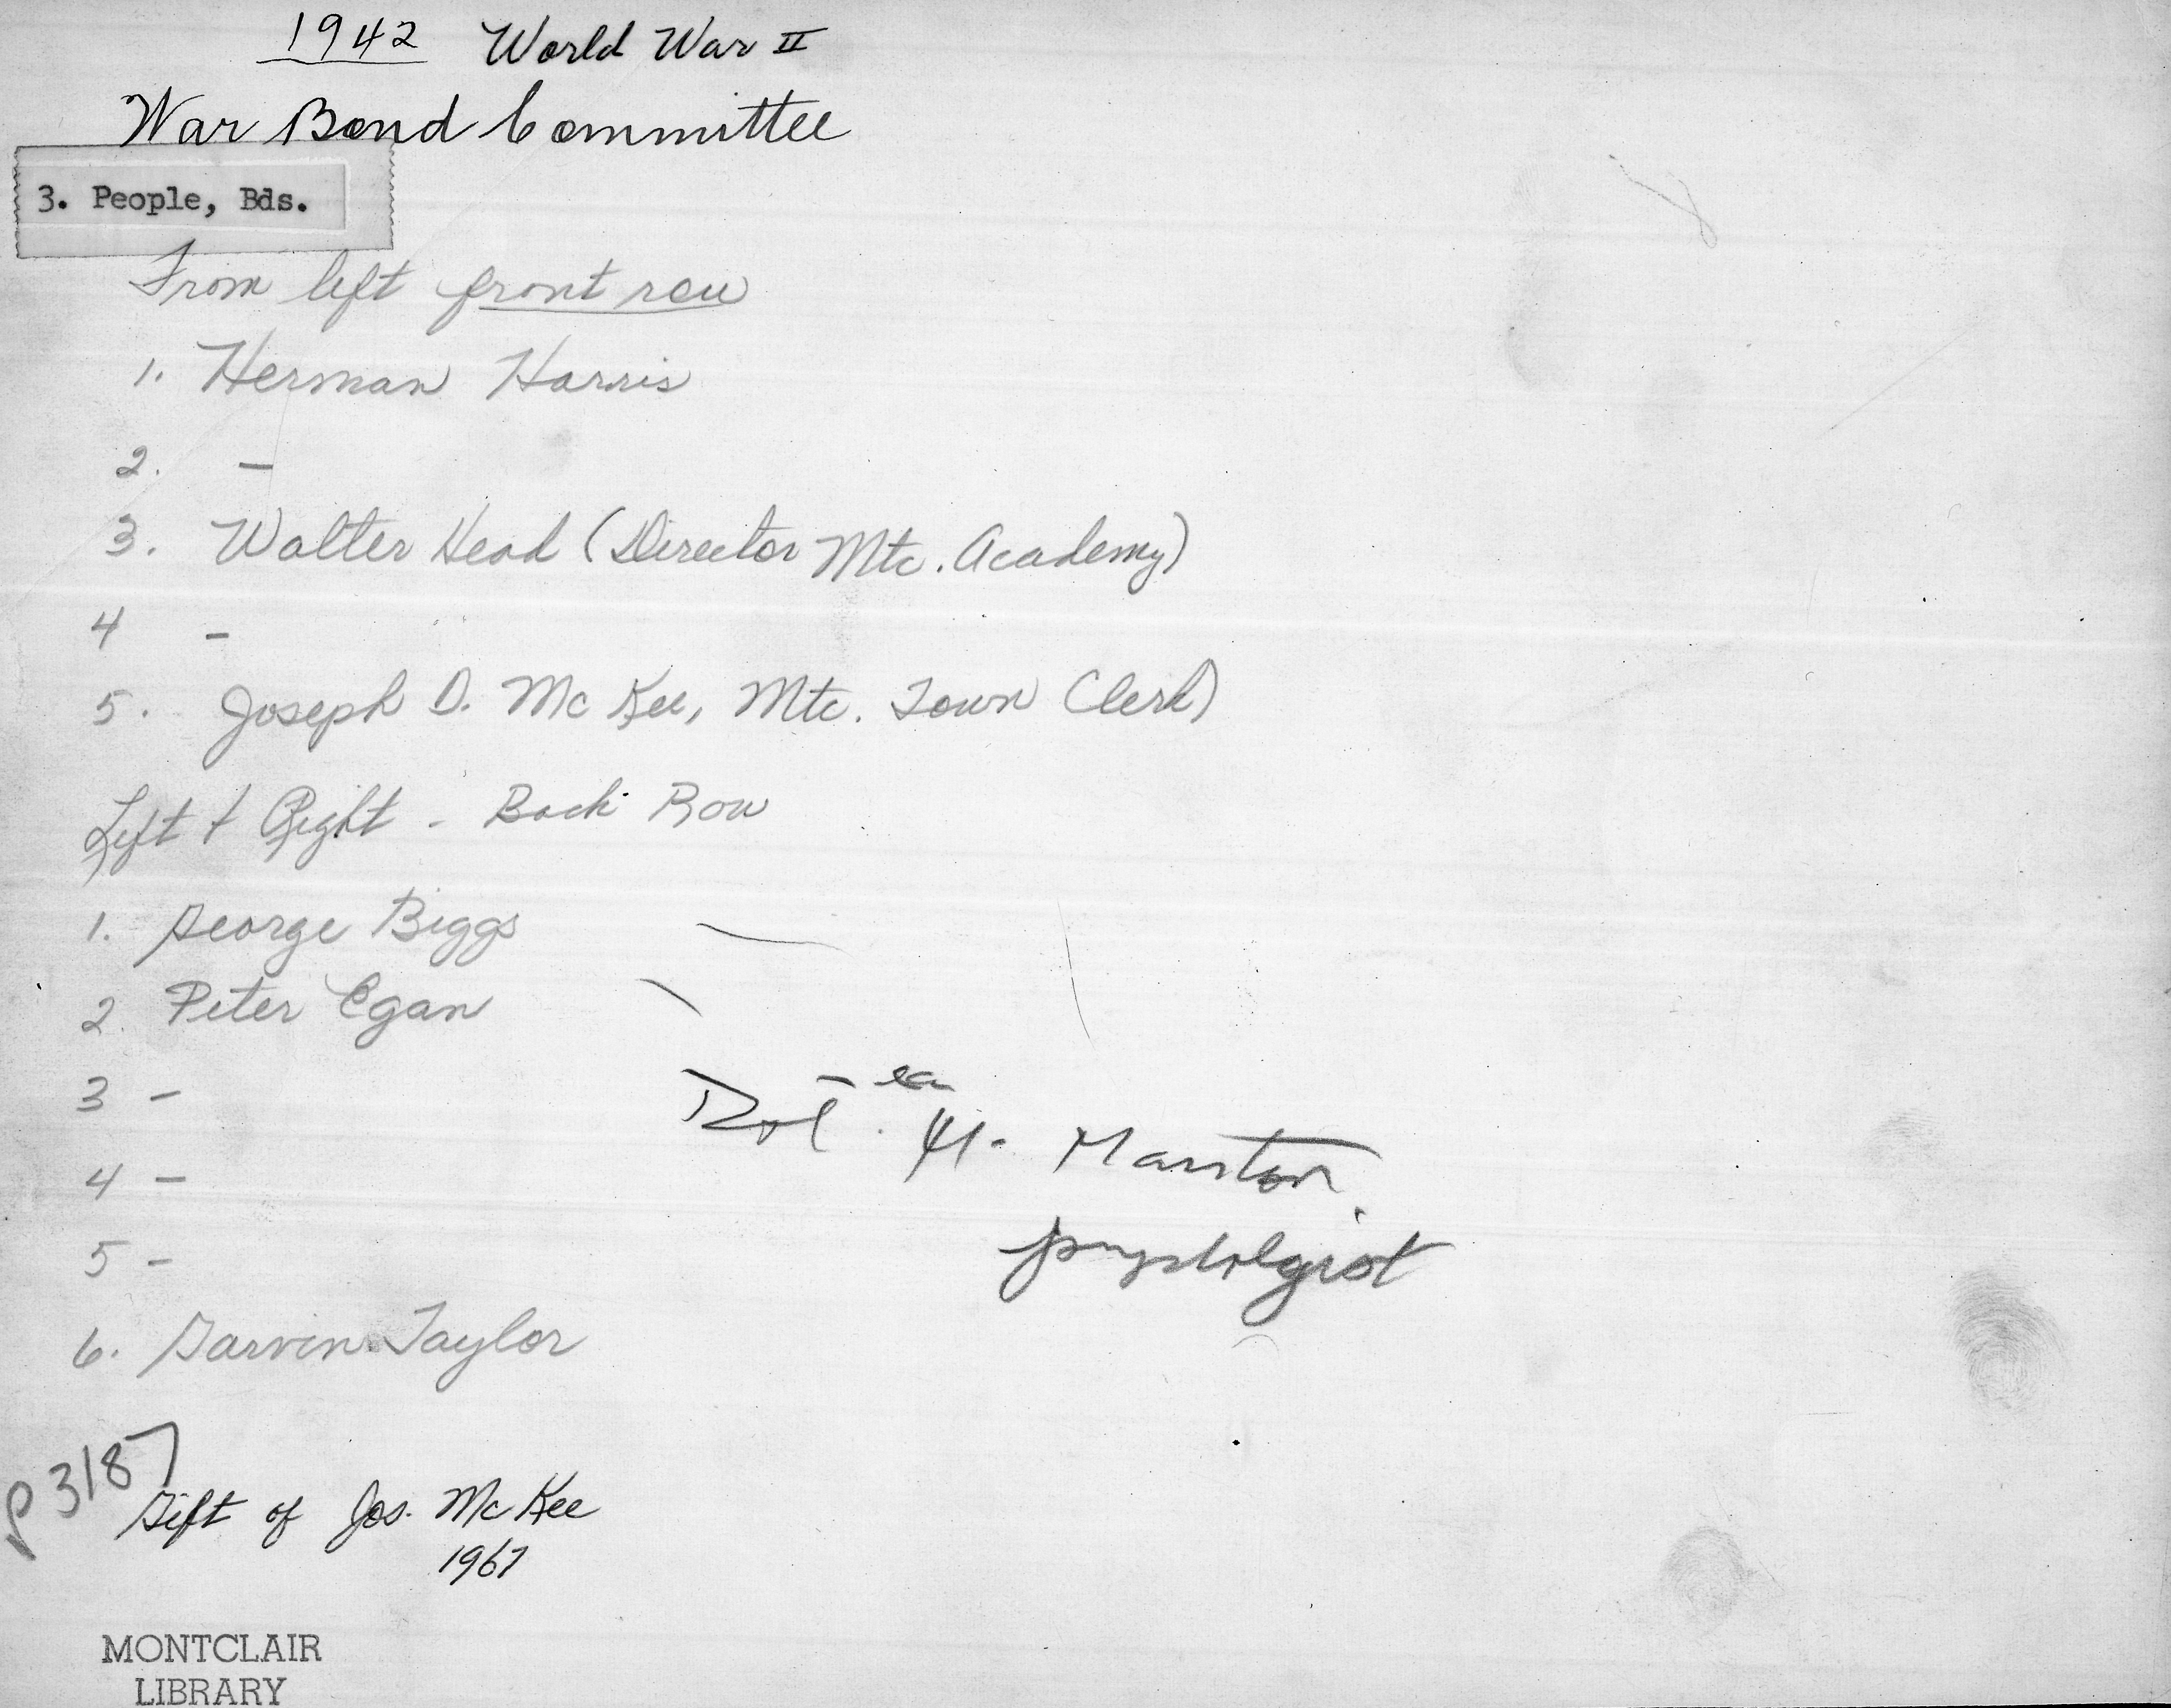 1942 World War II
War Bond Committee
3. People, Bds.
From left front row
1. Herman Harris
2. -
3. Walter Head (Director Mtc. Academy)
4 -
5. Joseph D. McKee, Mtc. Town Clerk)
Left + Right - Back Row
1. George Biggs
2. Peter Egan
3 -
4 -
5 -
6. Garvin Taylor
H. Marston
P3187
Gift of Jos. McKee
1967
MONTCLAIR
LIBRARY